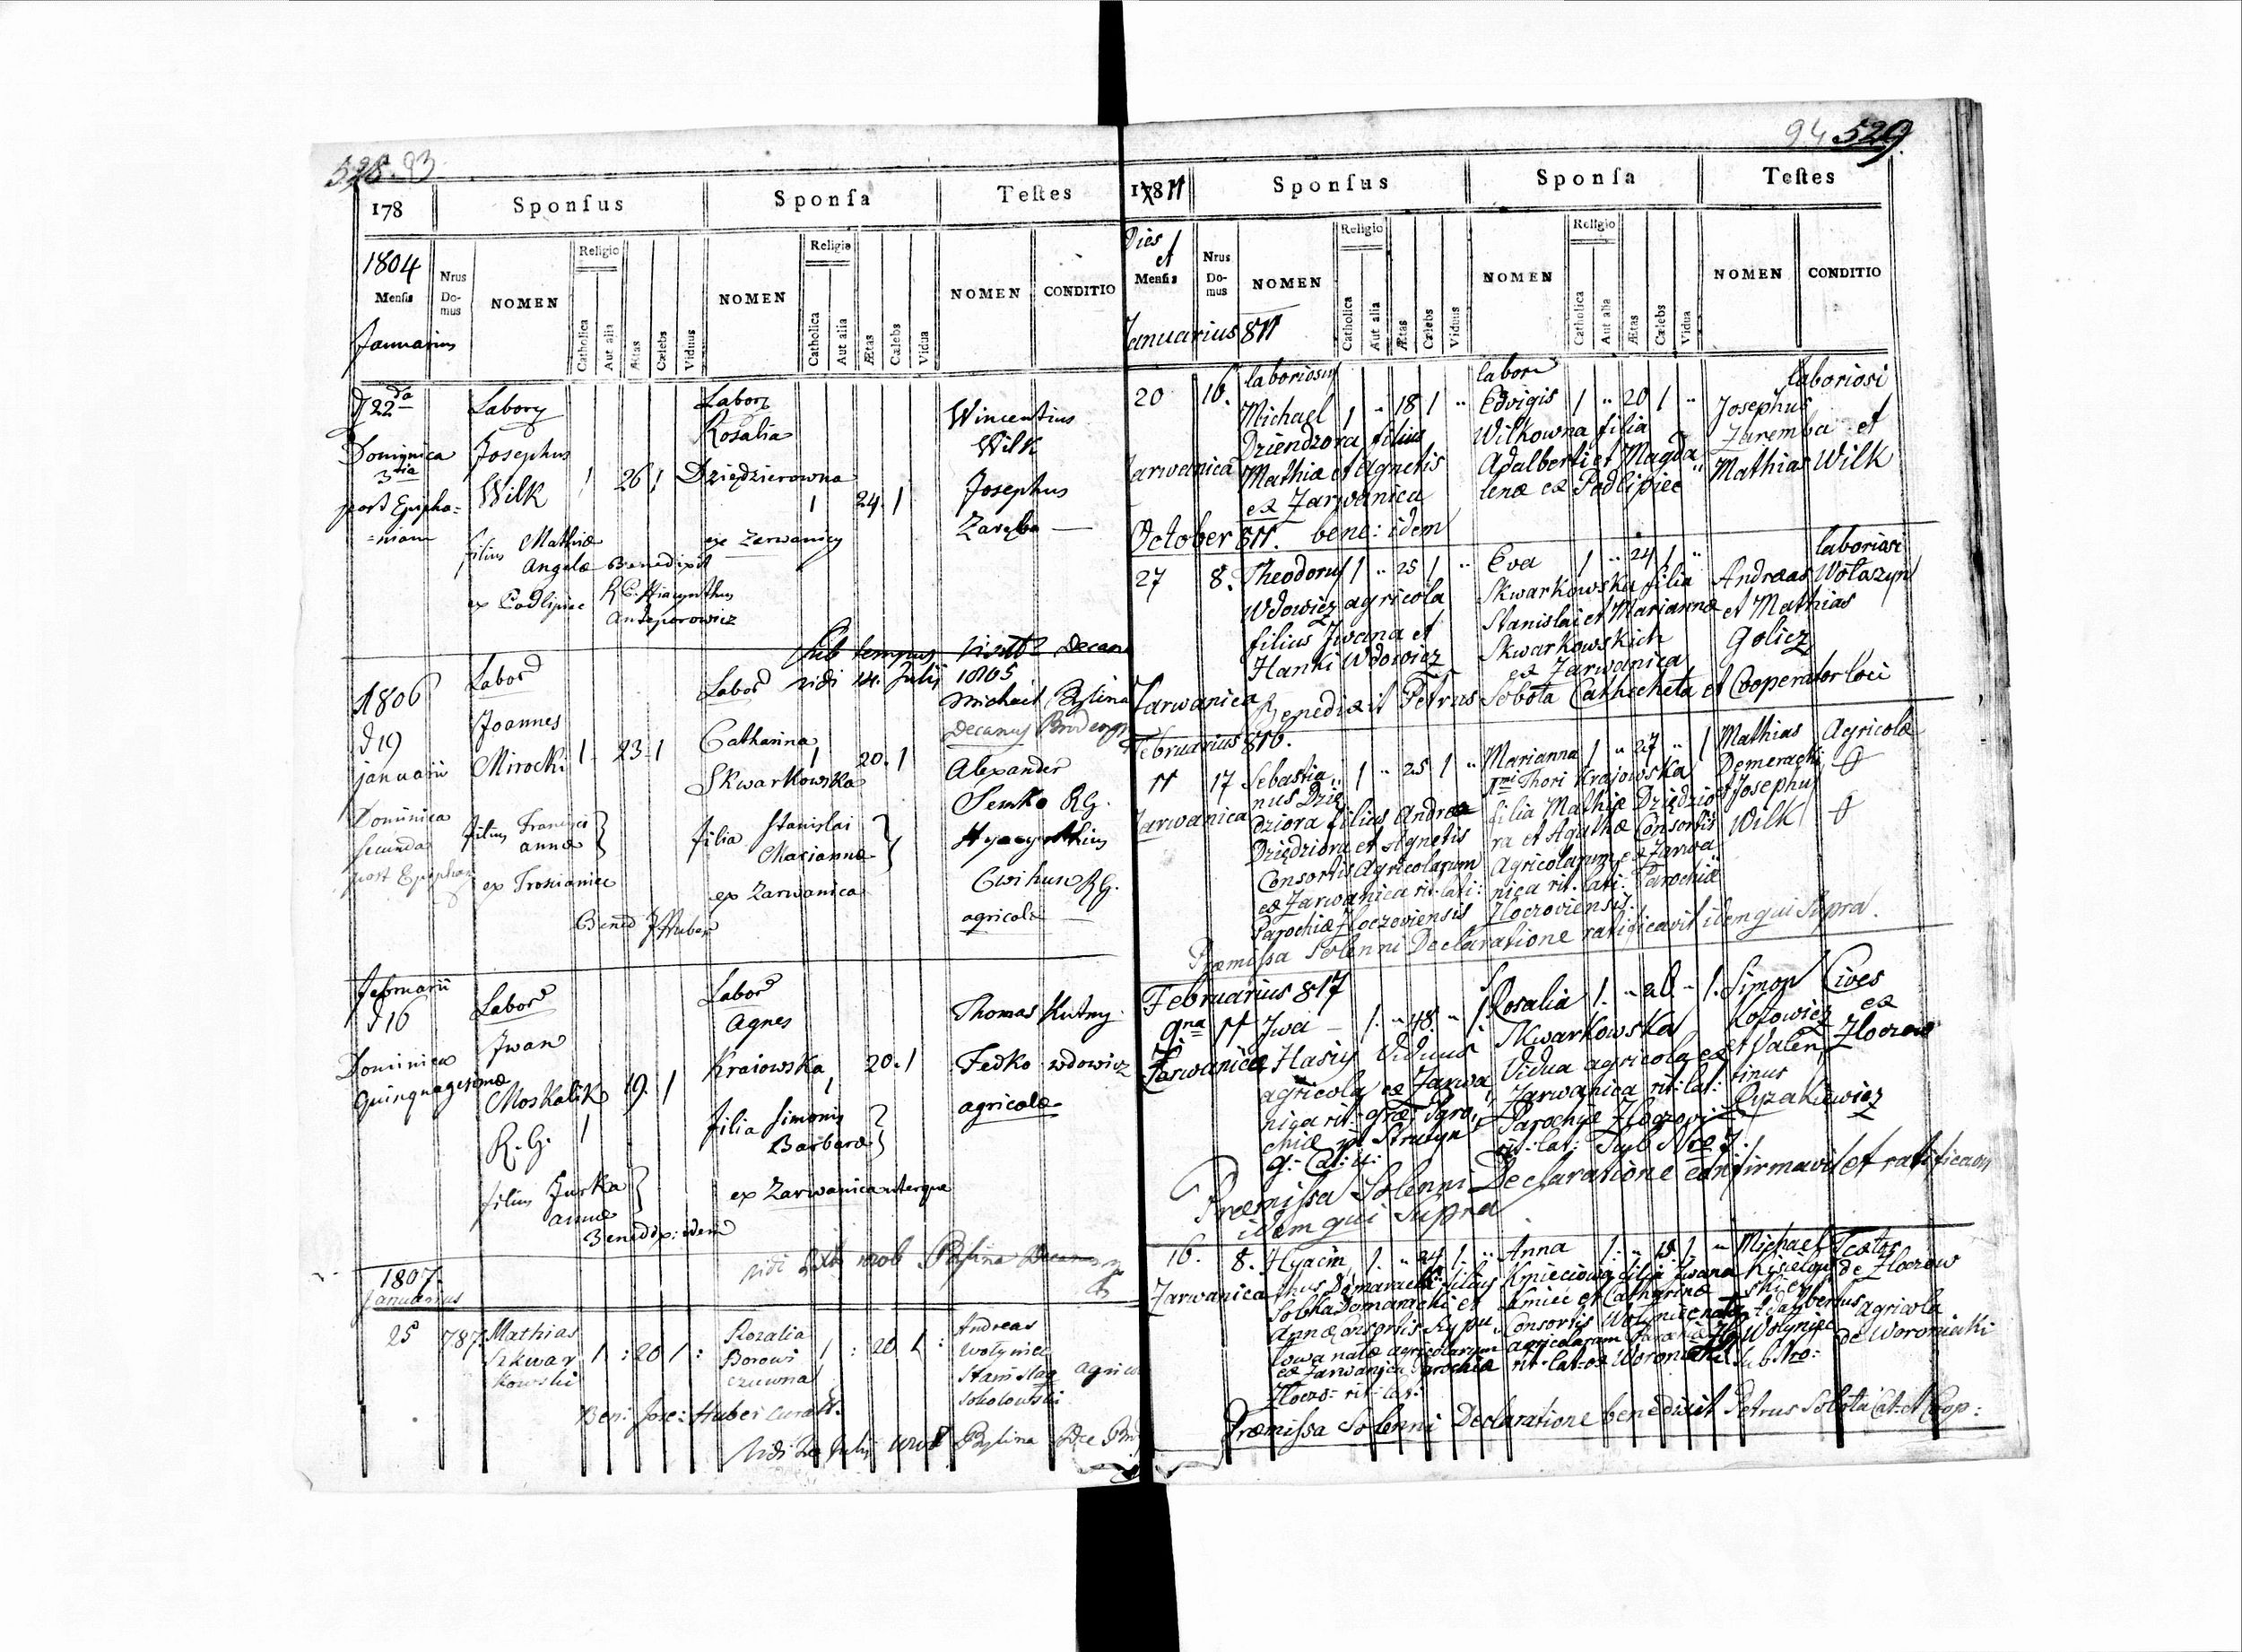 528. 93.
178
Sponsus
Sponsa
Testes
1804
Mensis
Januarius
Nrus Domus
NOMEN
Religio
Catholica
Aut alia
Ætas
Cælebs
Viduus
NOMEN
Religio
Catholica
Aut alia
Ætas
Cælebs
Vidua
NOMEN
CONDITIO
D 22da
Dominica
3tia
post Epipha=
=niam
Labory
Josephus
Wilk 1 26 1
filius Mathiæ
Angelæ
ex Podlipiec
Labory
Rosalia
Dziędzierowna
1 24 1
ex Zarwanicy
Benedixit
Wincentius
Wilk
Josephus
Zaręba —
Sub tempus Decan
vidi 14. Julij 1805
Michael Bylina
Decanus
1806
d 19
januarii
Dominica
secunda
post Epiphan
Labor
Joannes
Mirocki 1 23 1
filius Francisci
annæ
ex Troscianiec
Labor
Catharina
1 20. 1
Skwarkowska
filia Stanislai
Mariannæ
ex Zarwanica
Bened J Huber
Alexander
Semko RG.
Hyacynthius
Cwihun RG.
agricolæ —
februarii
d 16
Dominica
Quinquagesimæ
Labor
Jwan
Moskalik 19. 1
R. G. 1
filius Jurka
annæ
Labor
Agnes
Kraiowska 20. 1
1
filia Simonis
Barbaræ
ex Zarwanica uterque
Benedix: idem
Thomas Kutny.
Fedko wdowicz
agricolæ
vidi Bylina Decanus
1807.
Januarius
25 787.
Mathias
Szkwar
kowski
1 : 20 1 :
Rozalia
Borowi
czuwna
1 : 20 1 :
Andreas
Wołyniec
Stanislag
Sokolowski
Ben: Jose: Huber curatt.
Vidi Julij Bylina
94 529.
1811
Sponsus
Sponsa
Testes
Dies et
Mensis
Nrus Domus
NOMEN
Religio
Catholica
Aut alia
Ætas
Cælebs
Viduus
NOMEN
Religio
Catholica
Aut alia
Ætas
Cælebs
Vidua
NOMEN
CONDITIO
Januarius 811
20 16.
Zarwanica
laboriosus
Michael 1 " 18 1 "
Dziendziora filius
Mathiæ et Agnetis
ex Zarwanica
labor
Edvigis 1 " 20 1 "
Wilkowna filia
Adalberti et Magda"
lenæ ex Podlipiec
laboriosi
Josephus
Zaremba et
Mathias Wilk
October 811. bene: idem
27 8.
Theodorus 1 " 25 1 "
Wdowicz agricola
filius Jwana et
Hanki Wdowicz
Eva 1 " 24 1 "
Skwarkowska filia
Stanislai et Mariannæ
Skwarkowskich
ex Zarwanica
laboriosi
Andreas Wołaszyn
et Mathias
Golicz
Zarwanica Benedixit Petrus Sobota Cathecheta et Cooperator loci
Februarius 816.
11 17
Zarwanica
Sebastia" 1 " 25 1 "
nus Dzię
dziora filius Andreæ
Dziędziora et Agnetis
Consortis Agricolarum
ex Zarwanica rit: lati:
Parochiæ Zloczoviensis
Marianna 1 " 27 " 1
1mi Thori Krajowska
filia Mathiæ Dziędzio
ra et Agathæ Consortis
Agricolarum ex Zarwa"
nica rit: lati: Parochiæ
Zloczoviensis
Mathias Agricolæ
Demeracki
et Josephus
Wilk
Præmissa Solenni Declaratione ratificavit idem qui supra.
Februarius 817
9na 11
Zarwanica
Jwa — 1. " 48 " 1
Hasiy Viduus
agricola ex Zarwa,
nica rit: græ: Paro,
chiæ
Rosalia 1. " " 1.
Skwarkowska
Vidua agricola ex
Zarwanica rit: lat:
Parochiæ
rit: lat: Sub Nro 7.
Simon Cives
Kolowicz ex
et Valen, Zloczow
tinus
Ryzakiewicz
Præmissa Solenni Declaratione confirmavit et ratificavit
idem qui supra
16. 8.
Zarwanica
Hyacin, 1. " 24 1. "
thus Domaracki filius
Sobka Domaracki et
Annæ Consortis
natæ agricolarum
ex Zarwanica Parochiæ
Zlocz: rit: lat:
Anna 1. " 18 1 "
Kmieciowna filia Jwana
Kmiec et Catharinæ
Consortis
agricolarum
rit: lat: ex Woroniaki Sub Nro:
Michael Textor
de Zloczow
Adalbertus agricola
Wołyniec de Woroniaki
Præmissa Solenni Declaratione benedixit Petrus Sobota Cat: et Coop: